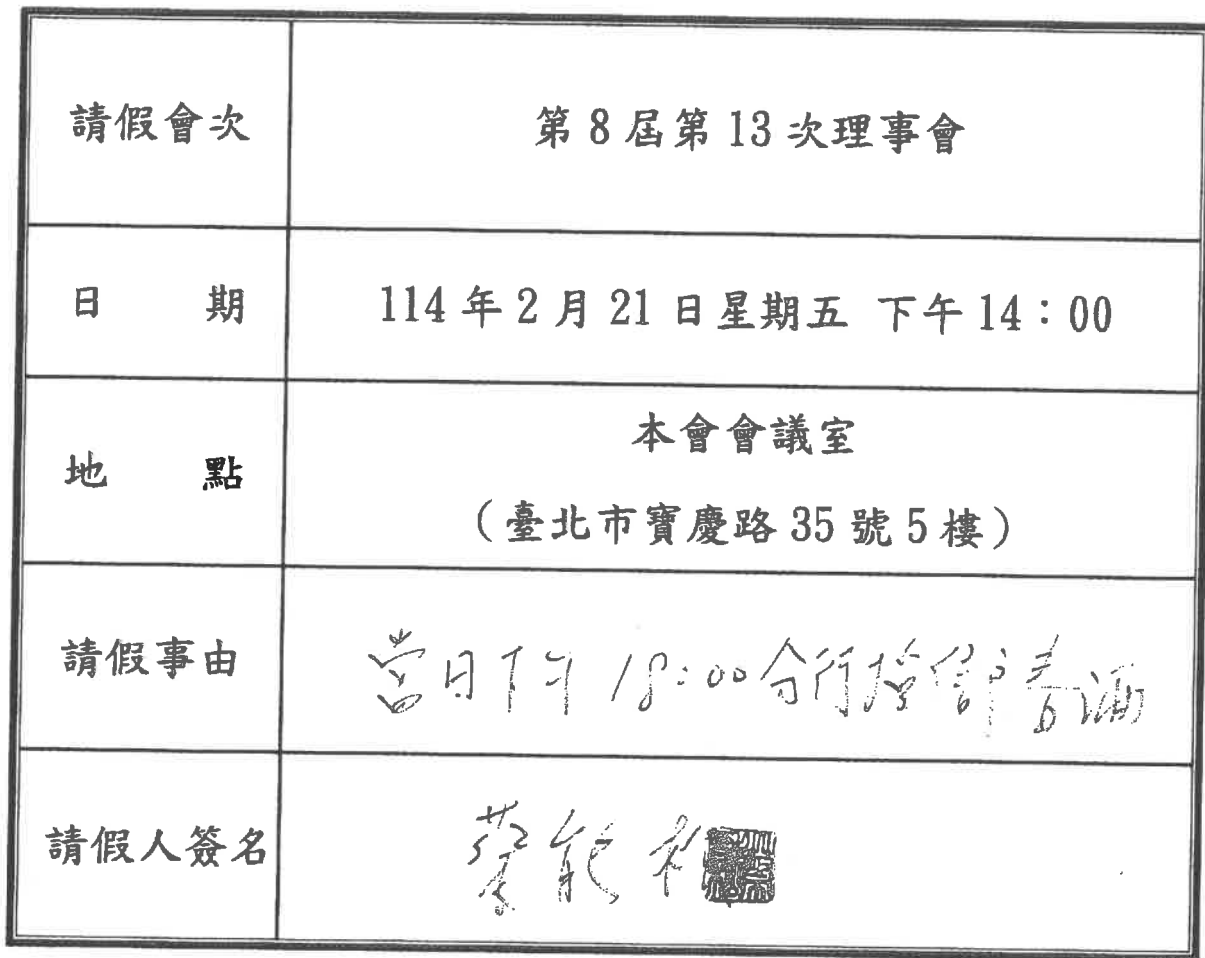 請假會次
第 8 屆第 13 次理事會
日 期
114 年 2 月 21 日星期五 下午 14：00
地 點
本會會議室
（臺北市寶慶路 35 號 5 樓）
請假事由
當日下午 18:00 分行
請假人簽名